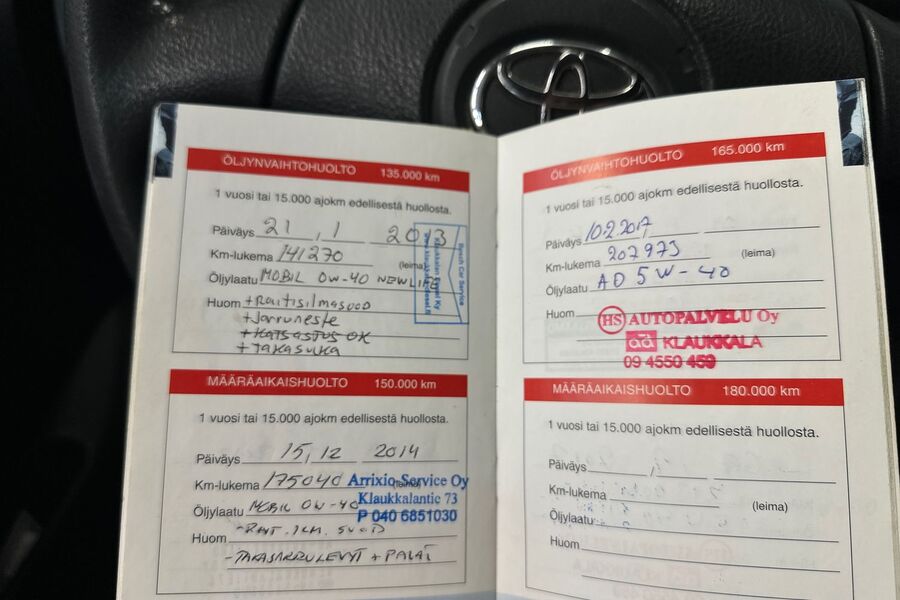 ÖLJYNVAIHTOHUOLTO 135.000 km
1 vuosi tai 15.000 ajokm edellisestä huollosta.
Päiväys 21 , 1 2013
Km-lukema 141270 (leima)
Öljylaatu MOBIL 0W-40 NEWLIFE
Huom +RAITISILMASUOD
+JARRUNESTE
+KATSASTUS OK
+TAKASULKA
Bosch Car Service
MÄÄRÄAIKAISHUOLTO 150.000 km
1 vuosi tai 15.000 ajokm edellisestä huollosta.
Päiväys 15, 12 2014
Km-lukema 175040 (leima)
Arrixio-Service Oy
Klaukkalantie 73
P 040 6851030
Öljylaatu MOBIL 0W-40
-RAIT.ILM. SUOD
Huom
-TAKAJARRULEVYT + PALAT
ÖLJYNVAIHTOHUOLTO 165.000 km
1 vuosi tai 15.000 ajokm edellisestä huollosta.
Päiväys 10.2.2017
Km-lukema 207973 (leima)
Öljylaatu AD 5W-40
Huom
HS AUTOPALVELU Oy
ad KLAUKKALA
09 4550 459
MÄÄRÄAIKAISHUOLTO 180.000 km
1 vuosi tai 15.000 ajokm edellisestä huollosta.
Päiväys
Km-lukema (leima)
Öljylaatu
Huom